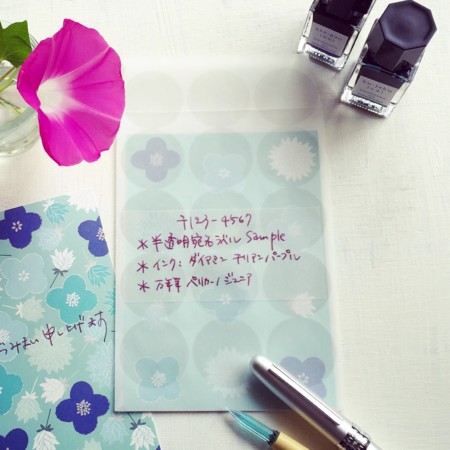 〒123-4567
*半透明宛名ラベル Sample
*インク:ダイアミン テリアンパープル
*万年筆 ペリカーノジュニア
申し上げます